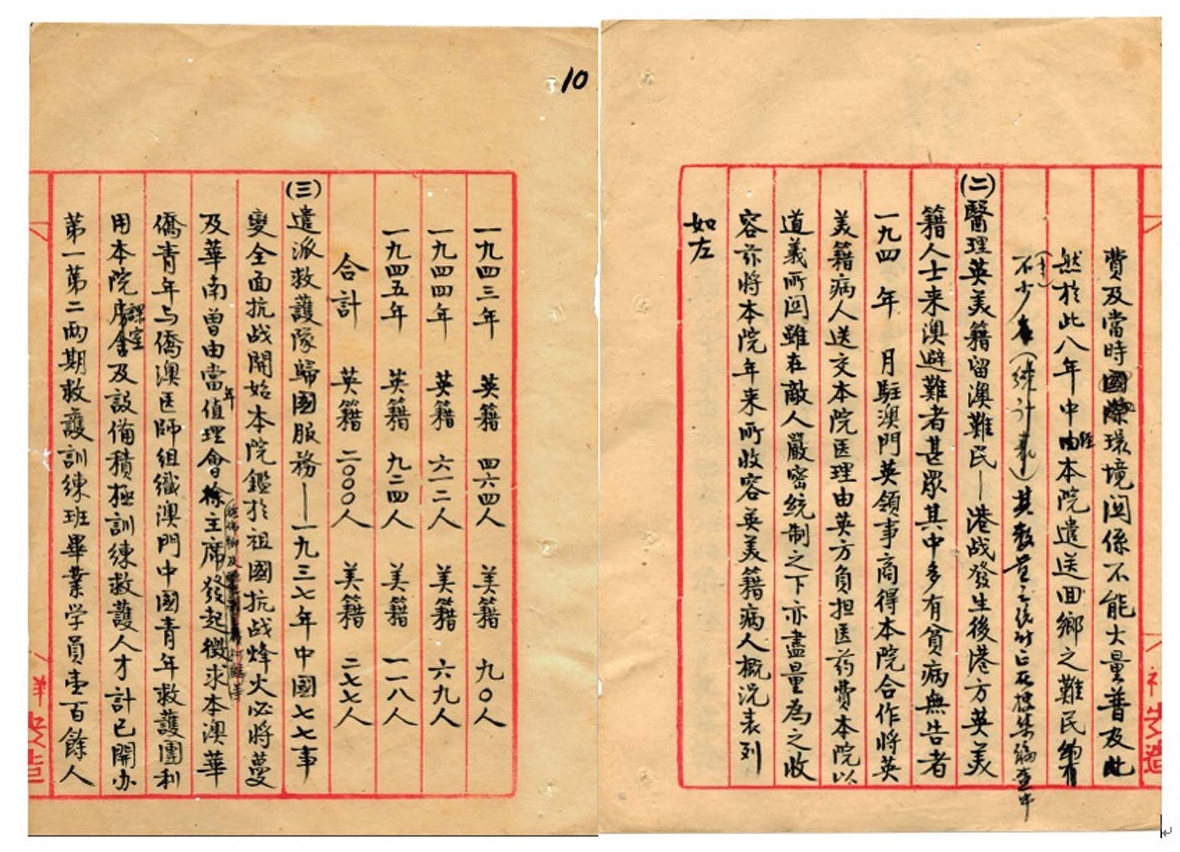 費及當時國際環境関係不能大量普及此
然於此八年中經本院遣送回鄉之難民約有
不少(統計表)其數
(二)醫理英美籍留澳難民—港战發生後港方英美
籍人士来澳避難者甚眾其中多有貧病無告者
一九四 年 月駐澳門英領事商得本院合作將英
美籍病人送交本院医理由英方負担医药費本院以
道義所関雖在敵人嚴密統制之下亦盡量為之收
容茲將本院年来所收容英美籍病人概況表列
如左
10
一九四三年 英籍 四六四人 美籍 九〇人
一九四四年 英籍 六一二人 美籍 六九人
一九四五年 英籍 九二四人 美籍 一一八人
合計 英籍 二〇〇〇人 美籍 二七七人
(三)遣派救護隊歸國服務—一九三七年中國七七事
變全面抗战開始本院鑑於祖國抗战烽火必將蔓
及華南曾由當年值理會徐主席發起徵求本澳華
僑青年与僑澳医師組織澳門中國青年救護團利
用本院課室及設備積極訓練救護人才計已開办
第一第二兩期救護訓練班畢業学員壹百餘人
祥安造